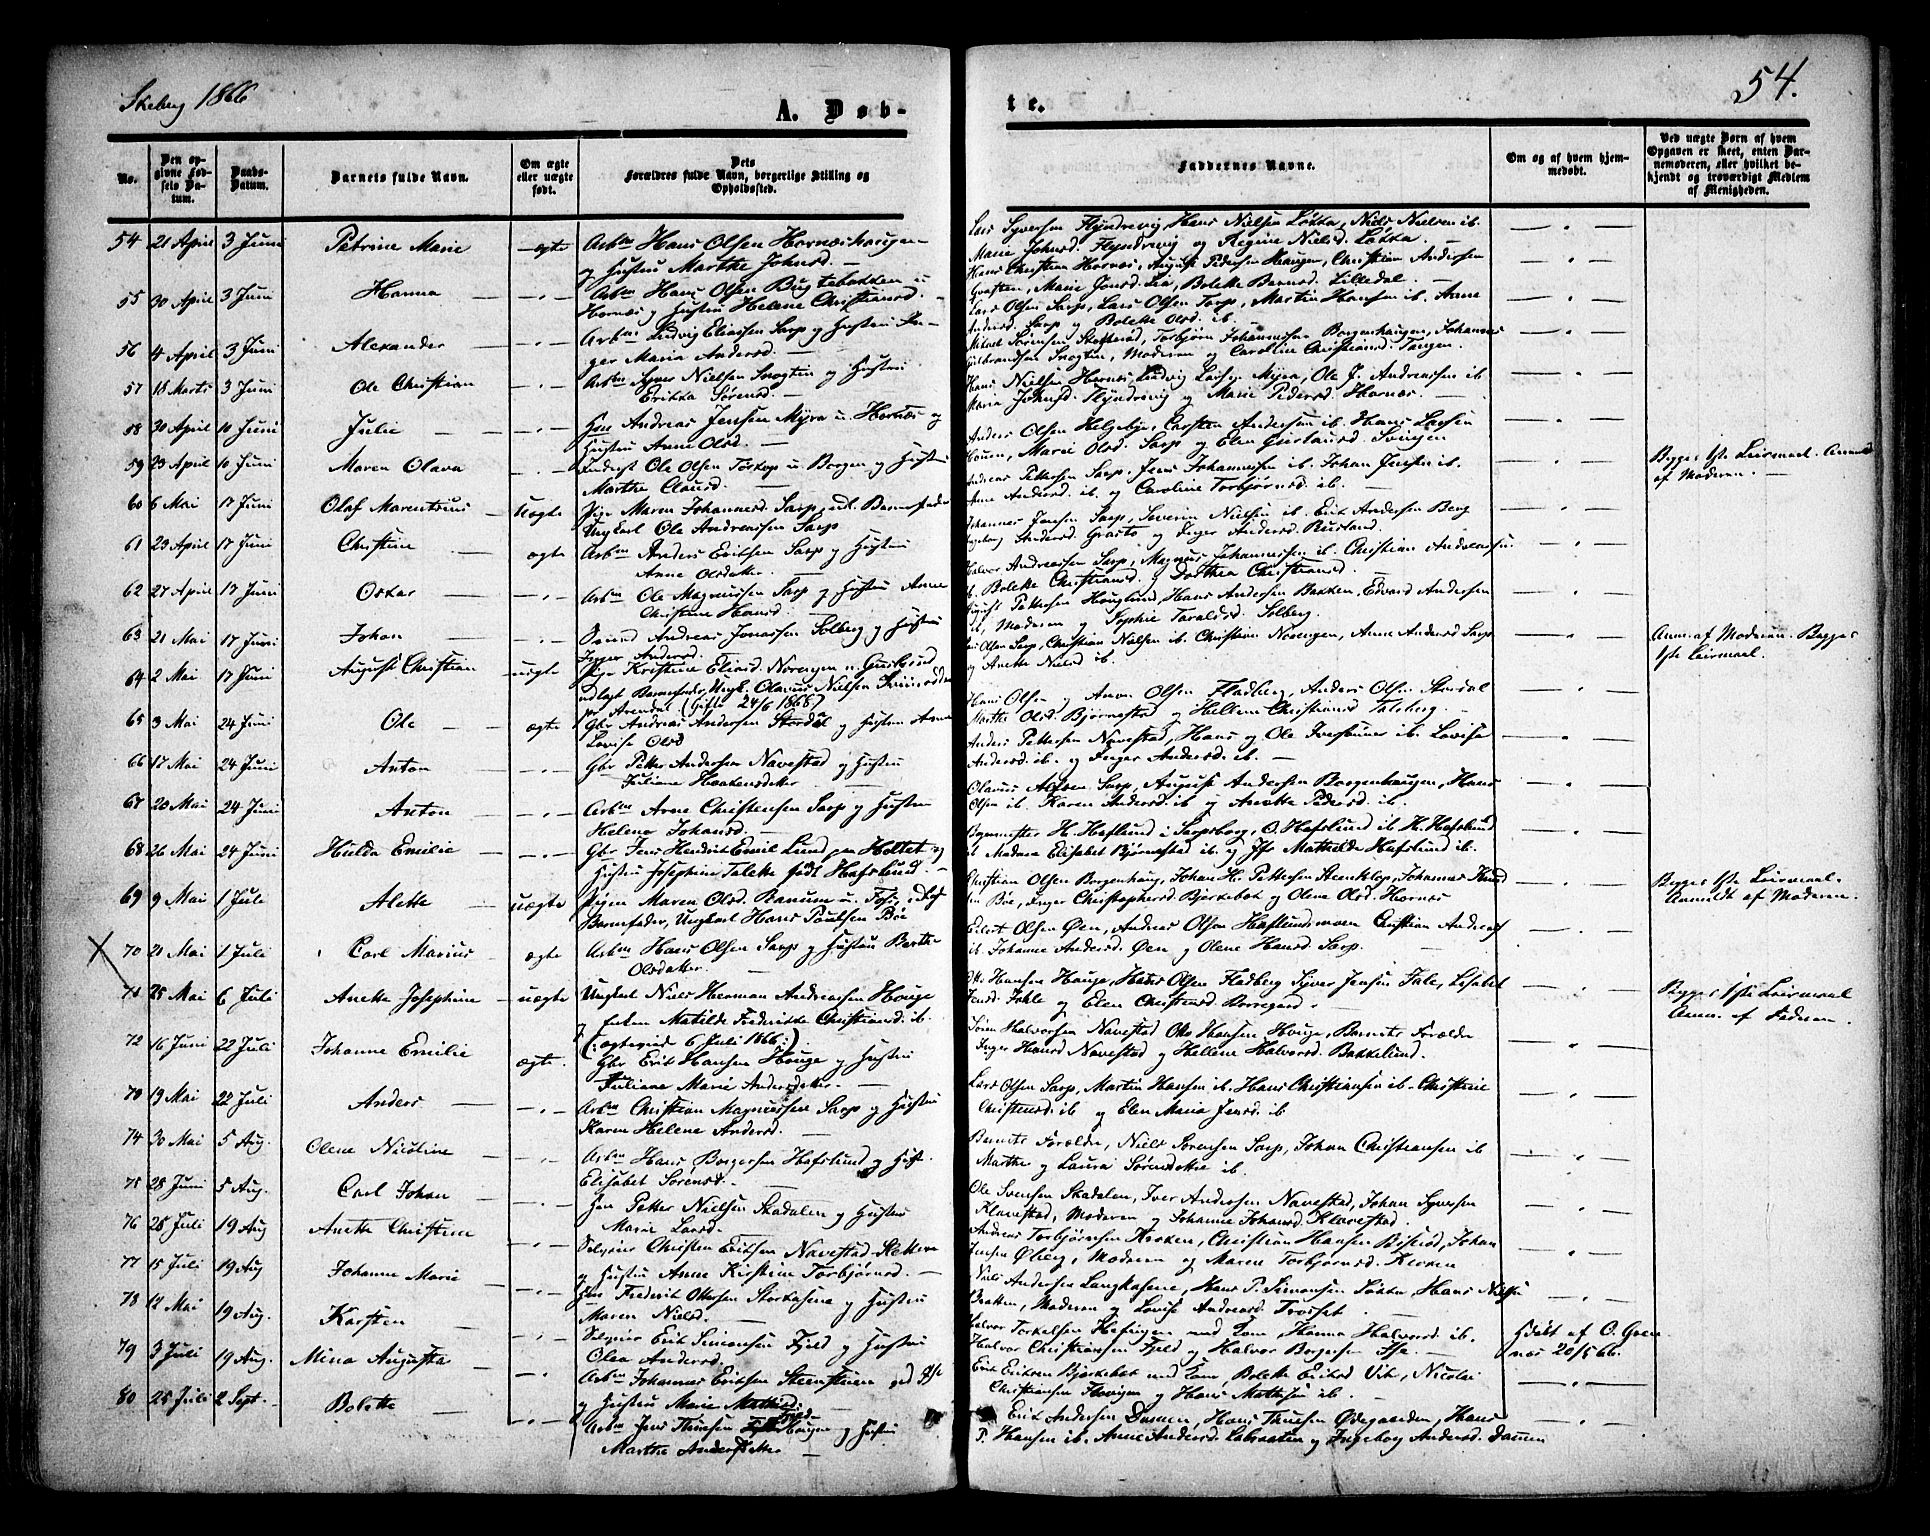 Skeberg 1866
54.
A. Døb-
te.
No.
Den opgivne Fødsels Datum.
Daabs-Datum.
Barnets fulde Navn.
Om ægte eller uægte født.
Dets Forældres fulde Navn, borgerlige Stilling og Opholdssted.
Faddernes Navne.
Om og af hvem hjemmedøbt.
Ved uægte Børn af hvem Opgaven er skeet, enten Barnemoderen, eller hvilket bekjendt og troværdigt Medlem af Menigheden.
54 21 April 3 Juni Petrine Marie — ægte Arbm Hans Olsen Hornæshaugen
og Hustru Marthe Johnsd. —
Lars Syversen Flyndrevig, Hans Nielsen Løkka, Niels Nielsen ib.
Marie Johnsd. Flyndrevig og Regine Nielsd. Løkka. —
55 30 April 3 Juni Hanna — — " — Arbm Hans Olsen Bugtebakken u
Hornæs og Hustru Helene Christiansd.
Hans Christian Hornæs, August Pedersen Haugen, Christian Andersen
Graften, Marie Jensd. Lia, Bolette Berntsd. Lilledal —
56 4 April 3 Juni Alexander — — " — Arbm Ludvig Eliassen Sarp og Hustru In-
ger Maria Andersd. —
Lars Olsen Sarp, Lars Olsen Sarp, Martin Hansen ib. Anne
Andersd. Sarp og Bolette Olsd. ib. —
57 18 Marts 3 Juni Ole Christian — " — Arbm Syver Nielsen Snogtin og Hustru
Erikka Sørensd. —
Mikael Sørensen Skofterød, Torbjørn Johannessen Borgenhaugen, Johannes
Gulbrandsen Snogtin, Moderen og Caroline Christiansd. Tangen.
58 30 April 10 Juni Julie — — " — Gm Andreas Jensen Myra u. Hornæs og
Hustru Anne Olsd. —
Hans Nielsen Hornæs, Ludvig Larsen Myra, Ole J. Andreassen ib
Maria Johnsd. Flyndrevig og Marie Pedersd. Hornæs —
59 23 April 10 Juni Maren Olava — " — Inderst Ole Olsen Torkop u Borgen og Hustru
Marthe Clausd. —
Anders Olsen Helgeby, Carsten Andersen ib. Hans Larsen
Houen, Marie Olsd. Sarp og Elen Guslausd. Svingen
60 6 Mai 17 Juni Olaf Marentsius uægte Pige Maren Johannesd. Sarp, udl. Barnefader
Ungkarl Ole Andreassen Sarp
Andreas Pettersen Sarp, Jens Johannessen ib. Johan Jensen ib.
Anne Andersd. ib. og Caroline Torbjørnsd. ib.
Begges 1ste Leirmaal. Anmeldt
af Moderen. —
61 23 April 17 Juni Christine — ægte Arbm Anders Eriksen Sarp og Hustru
Anne Olsdatter. —
Johannes Jensen Sarp, Severin Nielsen ib. Erik Andersen Berg
Ingeborg Andersd. Grasto og Inger Andersd. Rusland.
62 27 April 17 Juni Oskar — — " — Arbm Ole Magnussen Sarp og Hustru Anne
Christine Hansd. —
Halvor Andreassen Sarp, Magnus Johannessen ib. Christian Andreassen
ib. Bolette Christiansd. og Dorthea Christiansd. —
63 21 Mai 17 Juni Johan — — " — Andreas Jonassen Solberg og Hustru
Inger Andersd. —
August Pettersen Houglund, Hans Andersen Bakken, Edvard Andersen
ib, Moderen og Sophie Taraldsd. Solberg.
64 2 Mai 17 Juni August Christian uægte Pige Kristine Eliasd. Norengen u. Guslund
udlagt Barnefader, Ungk. Olavus Nielsen
pr. Arendal (Gifte 24/6 1868)
Lars Olsen Sarp, Christian Nielsen ib. Christian Norengen, Anne Andersd. Sarp
og Anette Nielsd. ib. —
Anm. af Moderen. Begges
1ste Leirmaal.
65 3 Mai 24 Juni Ole — ægte Gbr Andreas Andersen Stordal og Hustru Anne
Lovise Olsd —
Hans Olsen og Anne Olsen Fladberg, Anders Olsen Stordal
Marthe Olsd. Bjørnestad og Hellene Christiansd Taleberg. —
66 17 Mai 24 Juni Anton — — " — Gbr Petter Andersen Navestad og Hustru
Juliane Haakensdatter —
Anders Pettersen Navestad, Hans og Ole Iversønner ib. Lovise
Andersd. ib. og Inger Andersd. ib. —
67 20 Mai 24 Juni Anton — " — Arbm Arne Christensen Sarp og Hustru
Helene Johansd. —
Olavus Alfsen Sarp, August Andersen Borgenhaugen, Hans
Olsen ib. Karen Andersd. ib og Anette Pedersd. ib.
68 26 Mai 24 Juni Hulda Emilie — " — Gbr Jens Hendrik Emil Lund paa Holtet og
Hustru Josephine Talette født Hafslund. —
Bygmester H. Hafslund i Sarpsborg, O. Hafslund ib. H. Hafslund
ib Madame Elisabet Bjørnestad ib. og Jfr Mathilde Hafslund ib.
69 9 Mai 1 Juli Alette — uægte Pigen Maren Olsd. Kanum u. Fos, udlagt
Barnefader, Ungkarl Hans Poulsen Bøe
Christian Olsen Borgenhaug, Johan H. Pettersen Steenklop, Johannes Knud
sen Bøe, Inger Christophersd. Bjørkebøt og Olene Olsd. Hornæs
Begges 1ste Leirmaal.
Anmeldt af Moderen.
70 21 Mai 1 Juli Carl Marius — ægte Arbm Hans Olsen Sarp og Hustru Berthe
Olsdatter. —
Edvart Olsen Øen, Andreas Olsen Hafslundmoen Christian Andreas
ib. Johanne Andersd. Øen og Olene Hansd. Sarp. —
71 25 Mai 6 Juli Anette Josephine — uægte Ungkarl Niels Herman Andreassen Houge
og Enken Matilde Frederikke Christiansd. ib.
(: ægteviet 6 Juli 1866 :)
Otto Hansen Houge, Hans Olsen Fladberg Syver Jensen Tale, Lisabet
Jensd. Tale og Elen Christensd. Borregaard. —
Begges 1ste Leirmaal
Anm. af Faderen.
72 16 Juni 22 Juli Johanne Emilie ægte. Gbr Erik Hansen Houge og Hustru
Juliane Marie Andersdatter. —
Søren Halvorsen Navestad Otto Hansen Houge, Barnets Forældre
Inger Hansd Navestad og Hellene Halvorsd. Bakkelund.
73 19 Mai 22 Juli Anders — — " — Arbm Christian Magnussen Sarp og Hustru
Karen Helene Andersd. —
Lars Olsen Sarp, Martin Hansen ib. Hans Christiansen ib. Christine
Christensd. ib og Elen Maria Jensd. ib
74 30 Mai 5 Aug. Olene Nicoline — " — Arbm Hans Borgersen Hafslund og Hust.
Elisabet Sørensd. —
Barnets Forældre, Niels Sørensen Sarp, Johan Christiansen ib
Marthe og Laura Sørensdttre ib.
75 25 Juni 5 Aug. Carl Johan — " — Petter Nielsen Skadalen og Hustru
Marie Larsd. —
Ole Svensen Skadalen, Iver Andersen Navestad, Johan Syversen
Klavestad, Moderen og Johanne Johansd. Klavestad.
76 26 Juli 19 Aug Anette Christine — " — Selveier Christen Eriksen Navestad-Kokkra
og Hustru Anne Kirstine Torbjørnsd. —
Andreas Torbjørnsen Kroken, Christian Hansen Bisrød, Johan
Jensen Øberg, Moderen og Maren Torbjørnsd. Kroken
77 15 Juli 19 Aug Johanne Marie — " — Frederik Ottersen Storkasene og Hustru
Maren Nielsd. —
Niels Andersen Langkasene, Hans P. Simonsen Løkka, Hans Nielsen
Brekken, Moderen og Lovise Andersd. Trosset
78 12 Mai 19 Aug. Karsten — " — Selveier Erik Simonsen Fjeld og Hustru
Olea Andersd. —
Halvor Torkelsen Hafsengen med Kone Hanna Halvorsd. ib.
Halvor Christiansen Fjeld og Halvor Borgersen Ise. —
Hjdøbt af O. Gren
næs 20/5 66.
79 3 Juli 19 Aug. Mina Augusta — " — Arbm Johannes Eriksen Steenstuen ved Ise
og Hustru Marie Mathisd.
Erik Eriksen Bjørkebøt med Kone, Bolette Eriksd Vik, Nicolai
Christiansen Hovigen og Hans Mathisen ib. —
80 25 Juli 2 Sept. Bolette — " — Arbm Jens Thuesen haugen og Hustru
Marthe Andersdatter —
Erik Andersen Dammen, Hans Thuesen Ødegaarden, Hans
P. Hansen ib. Anne Andersd. Labraaten og Ingeborg Andersd. Dammen